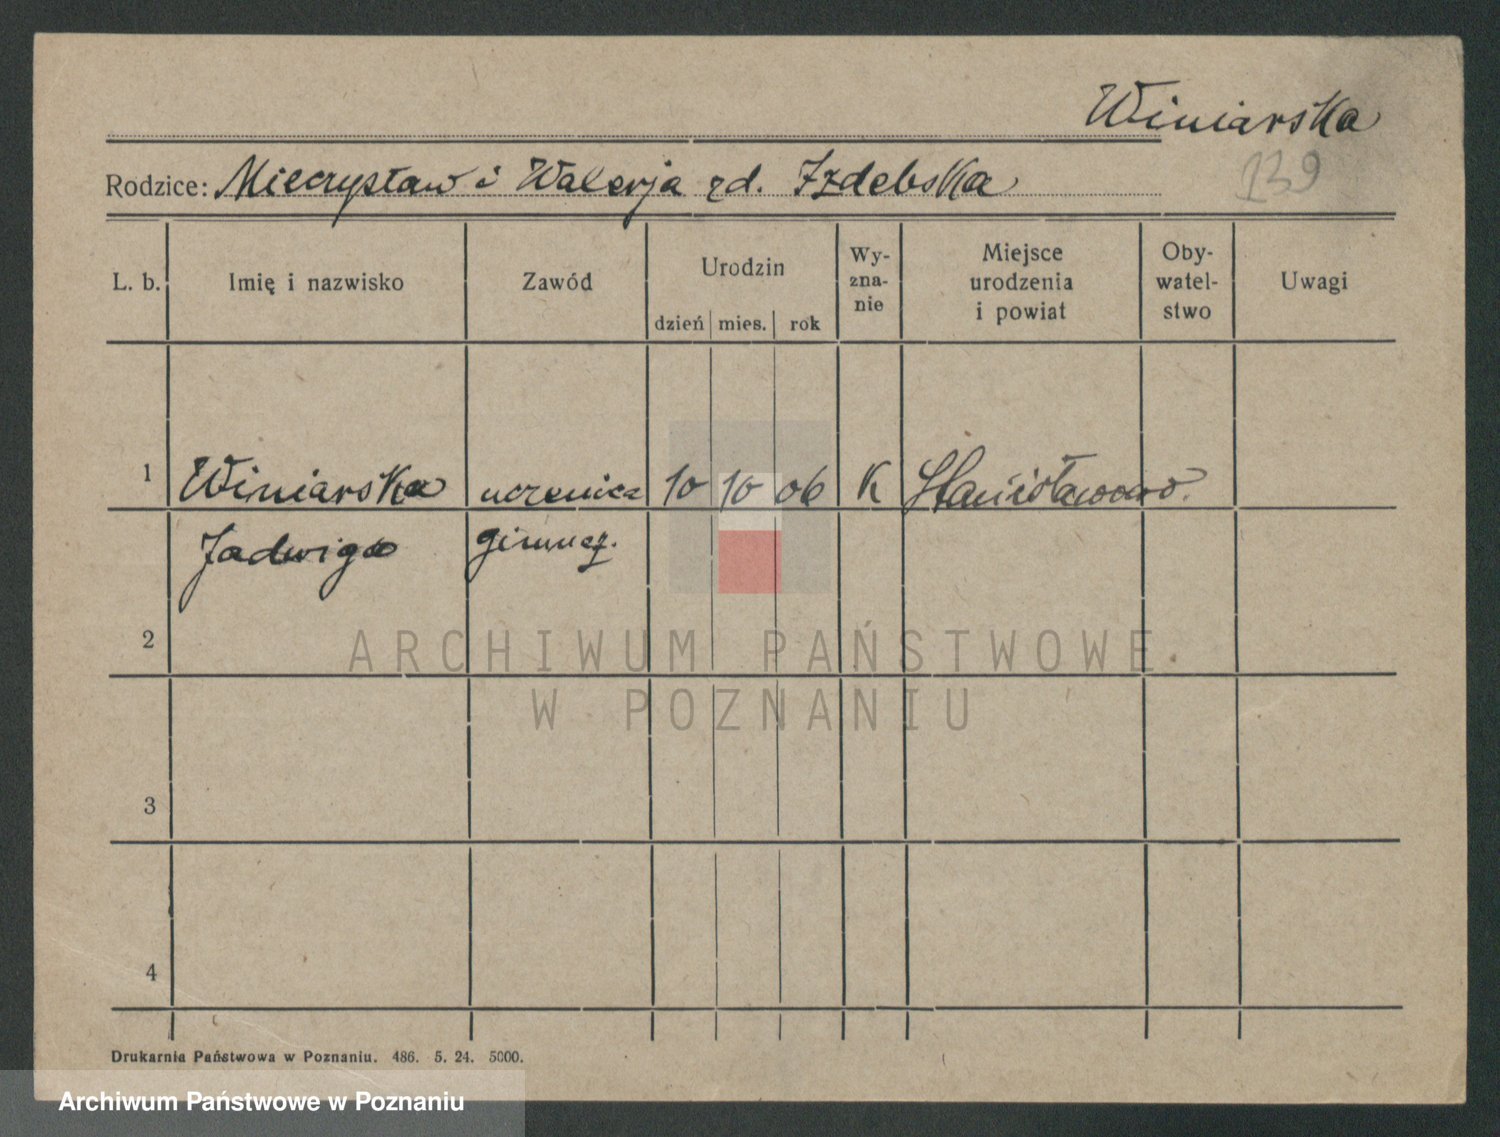 Winiarska
Rodzice: Mieczysław i Walerja zd. Izdebska
139
L. b. Imię i nazwisko Zawód Urodzin dzień mies. rok Wy-zna-nie Miejsce urodzenia i powiat Oby-watel-stwo Uwagi
1 Winiarska uczenica 10 10 06 K Stanisławowo.
Jadwiga gimnaz.
2
ARCHIWUM PAŃSTWOWE
W POZNANIU
3
4
Drukarnia Państwowa w Poznaniu. 486. 5. 24. 5000.
Archiwum Państwowe w Poznaniu